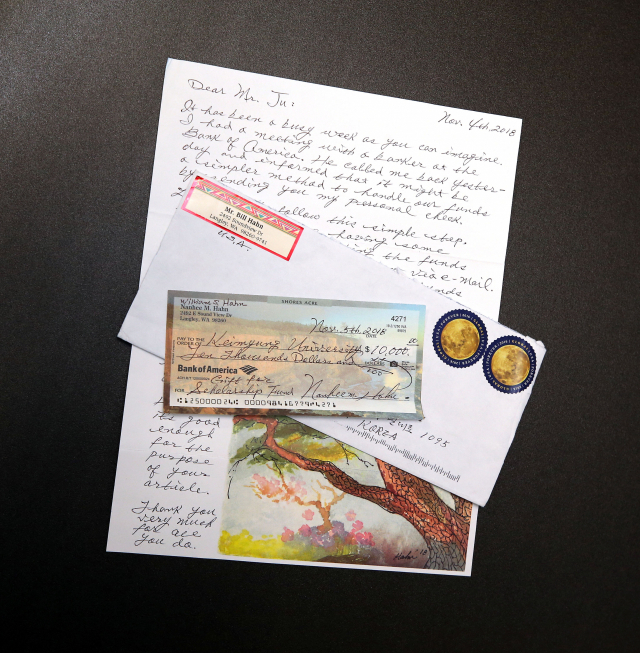 Nov. 4th, 2018
Dear Mr. Ju:
It has been a busy week as you can imagine.
I had a meeting with a banker at the
Bank of America. He called me back yester-
day and informed that it might be
a simpler method to handle our funds
by sending you my personal check.
follow this simple step.
having some
the funds
via e-mail.
Mr. Bill Hahn
Langley, WA
U.S.A.
SHORES ACRE
William S. Hahn
Nanhee M. Hahn
Langley, WA 98260
4271
Nov. 5th, 2018
DATE
PAY TO THE
ORDER OF Keimyung University $10,000.
Ten Thousands Dollars and
DOLLARS
Bank of America
Gift for
FOR Scholarship Fund
KOREA 1095
It's good
enough
for the
purpose
of your
article.
Thank you
very much
for all
you do.
Hahn '18